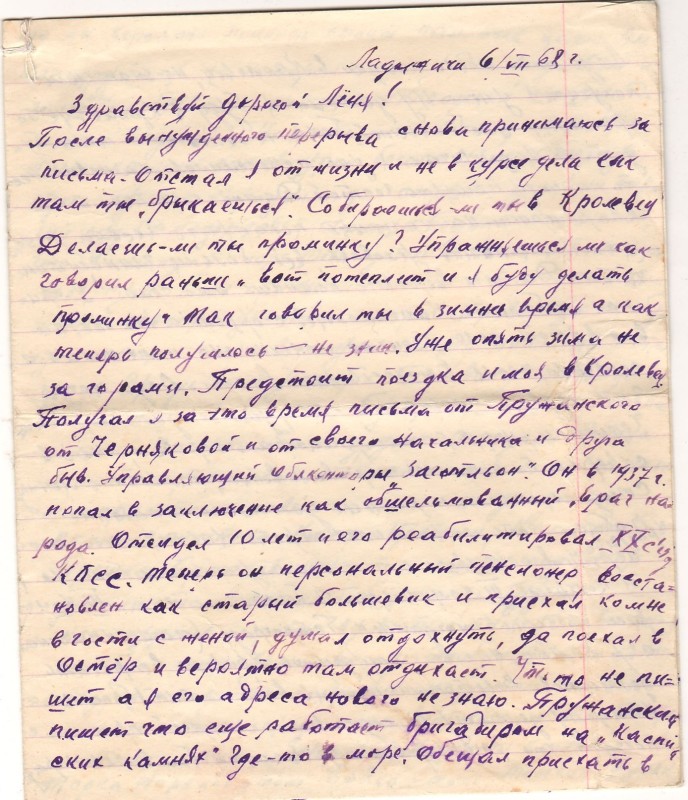 Ладыжичи 6/VII 68 г.
Здравствуй дорогой Лёня!
После вынужденного перерыва снова принимаюсь за
письма. Отстал я от жизни и не в курсе дела как
там ты „брыкаешься". Собираешься-ли ты в Кролевец
Делаешь-ли ты проминку? Упражняешься ли как
говорил раньше „вот потеплит и я буду делать
проминку" так говорил ты в зимнее время а как
теперь получилось — не знаю. Уже опять зима не
за горами. Предстоит поездка и моя в Кролевец.
Получал я за это время письма от Пружанского
от Черняковой и от своего начальника и друга
быв. Управляющий Облконторы „Заготльон". Он в 1937 г.
попал в заключение как обшельмованный „враг на-
рода. Отсидел 10 лет и его реабилитировал XX с'езд
КПСС. теперь он персональный пенсионер восста-
новлен как старый большевик и приехал ко мне
в гости с женой, думал отдохнуть, да поехал в
Остёр и вероятно там отдыхает. Что-то не пи-
шет а я его адреса нового не знаю. Пружанский
пишет что еще работает бригадиром на „Каспий
ских камнях" где-то в море. Обещал приехать в